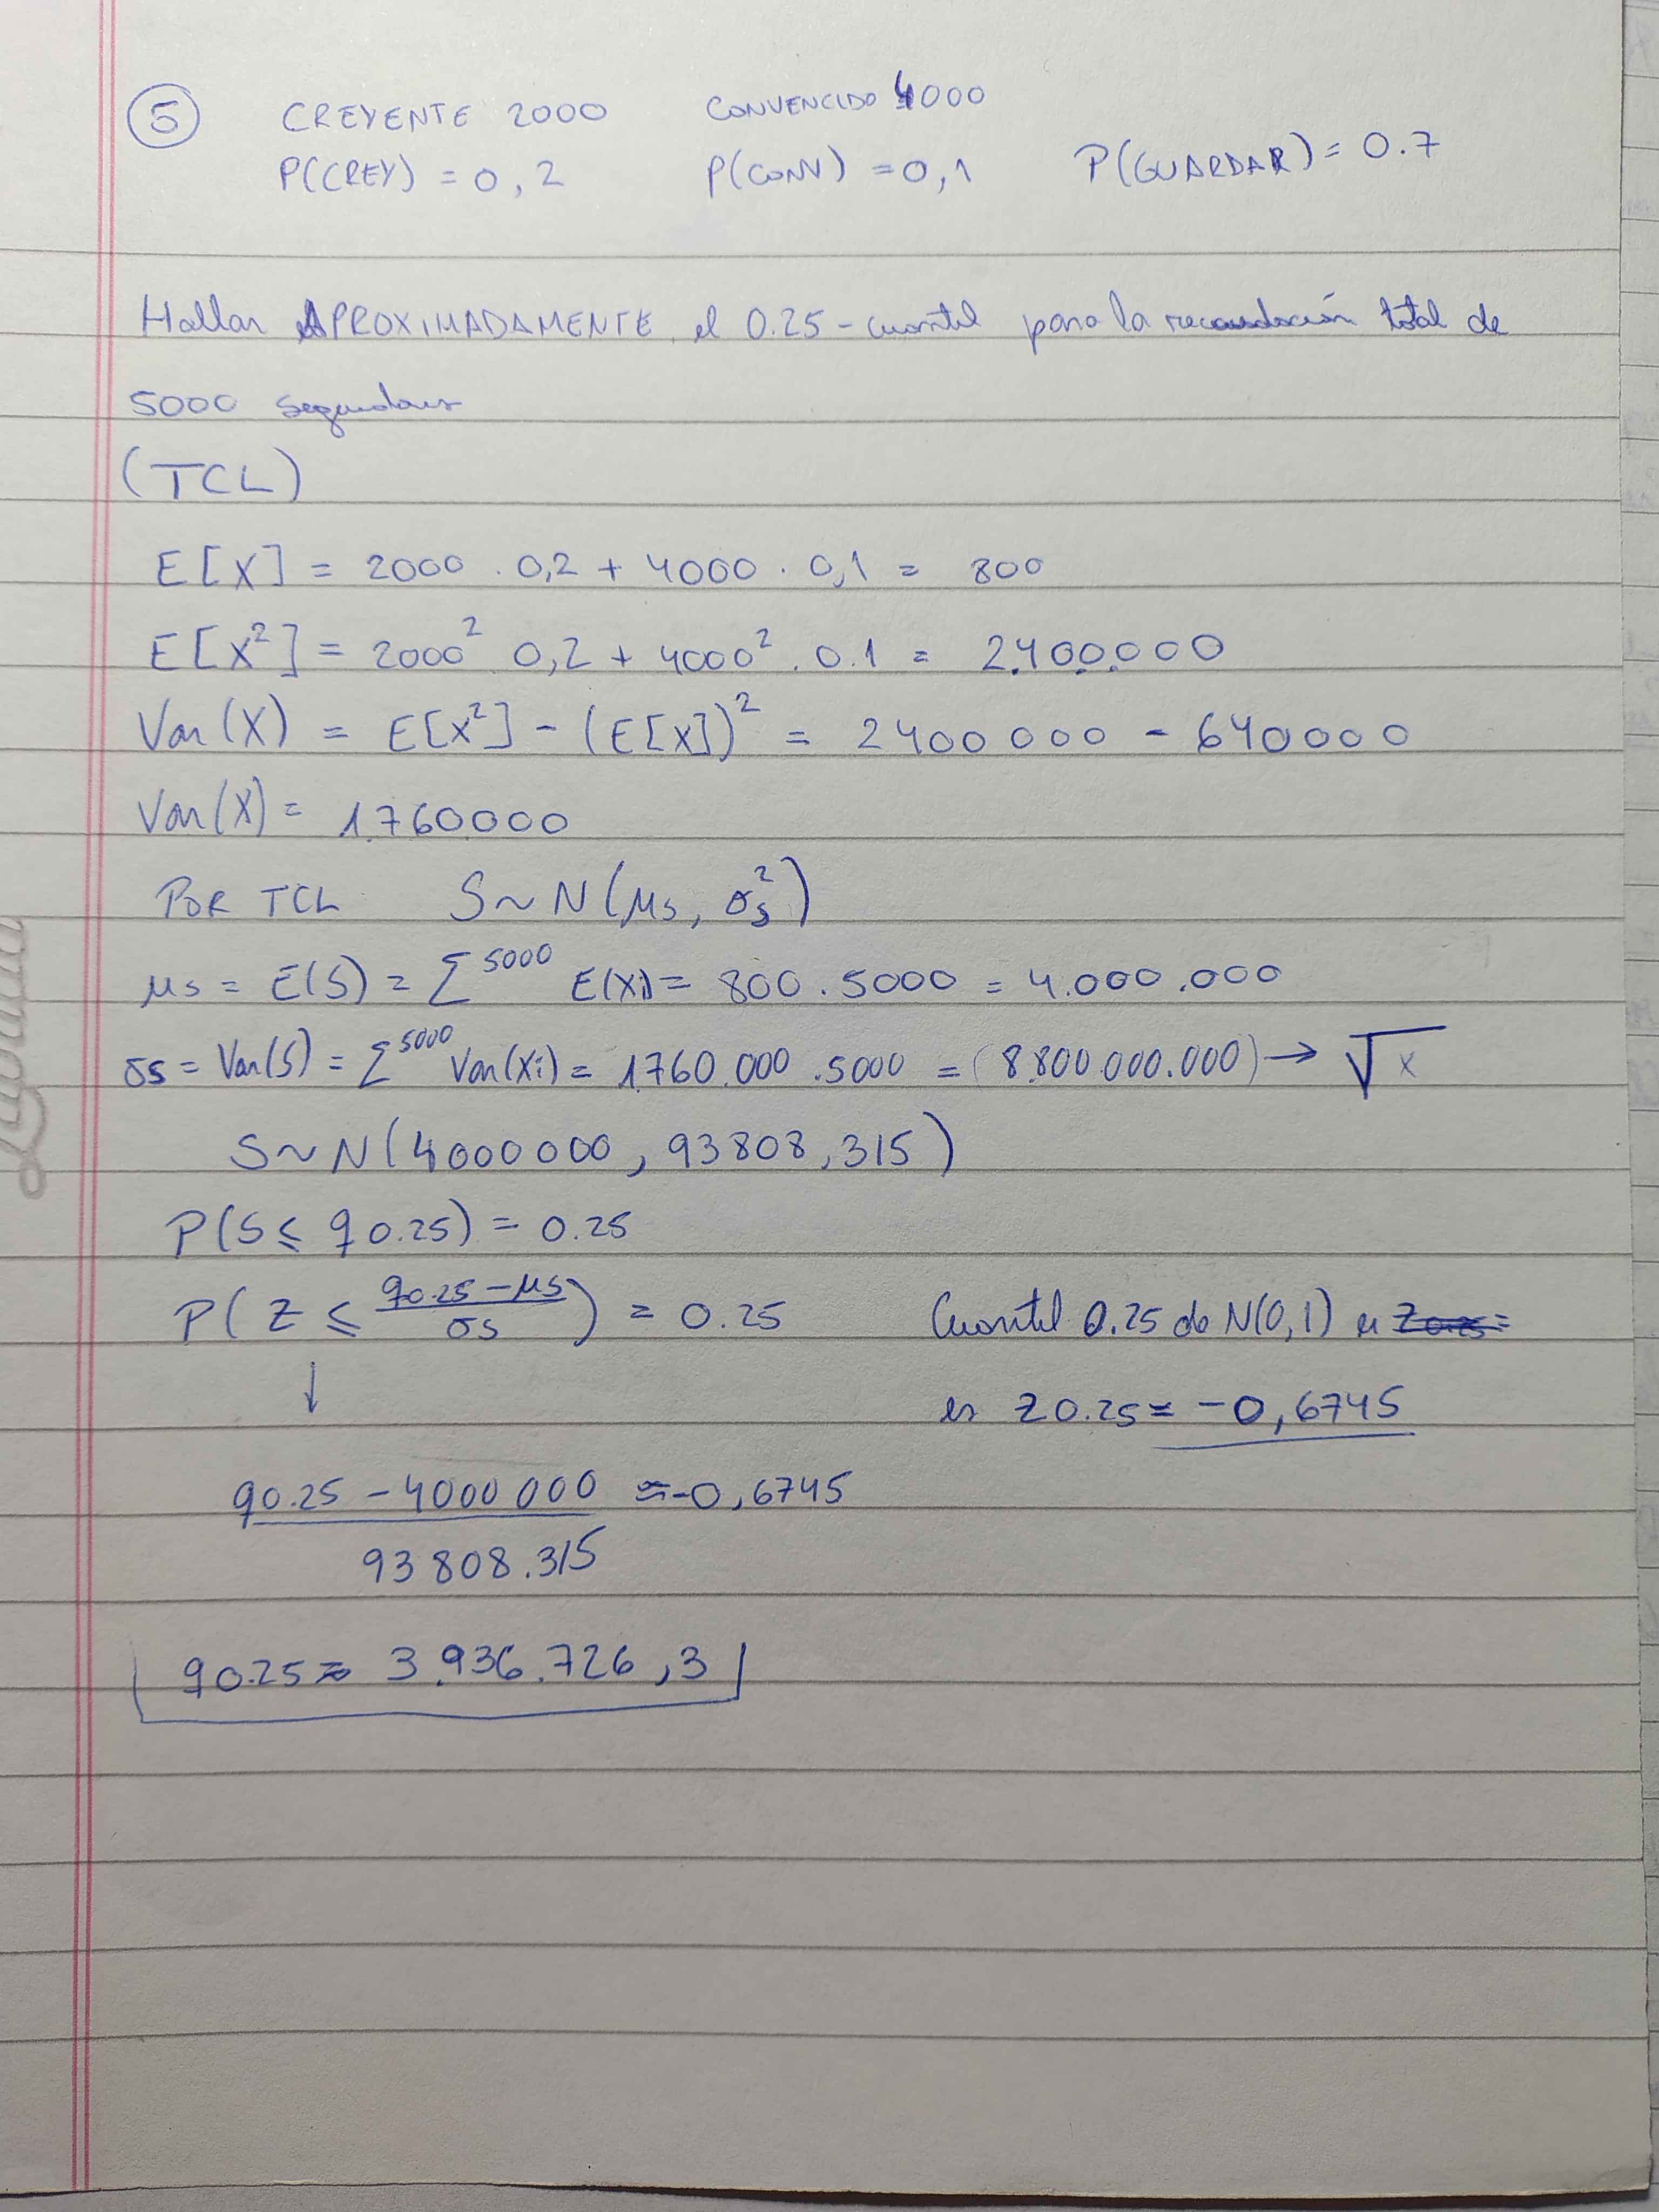 5 CREYENTE 2000 CONVENCIDO 4000
P(CREY) = 0,2 P(CONV) = 0,1 P(GUARDAR) = 0.7
Hallar APROXIMADAMENTE el 0.25-cuantil para la recaudación total de
5000 seguidores
(TCL)
E[X] = 2000 . 0,2 + 4000 . 0,1 = 800
E[X²] = 2000² 0,2 + 4000² . 0.1 = 2.400.000
Var(X) = E[X²] - (E[X])² = 2400000 - 640000
Var(X) = 1.760000
POR TCL S~N(μs, σs²)
μs = E(S) = Σ⁵⁰⁰⁰ E(Xi) = 800 . 5000 = 4.000.000
σs = Var(S) = Σ⁵⁰⁰⁰ Var(Xi) = 1.760.000 . 5000 = (8.800.000.000) → √x
S~N(4000000, 93808,315)
P(S ≤ q0.25) = 0.25
P(Z ≤ (q0.25 - μs)/σs) = 0.25 Cuantil 0.25 de N(0,1)
↓ es Z0.25 = -0,6745
q0.25 - 4000000 ≈ -0,6745
93808.315
q0.25 ≈ 3.936.726,3